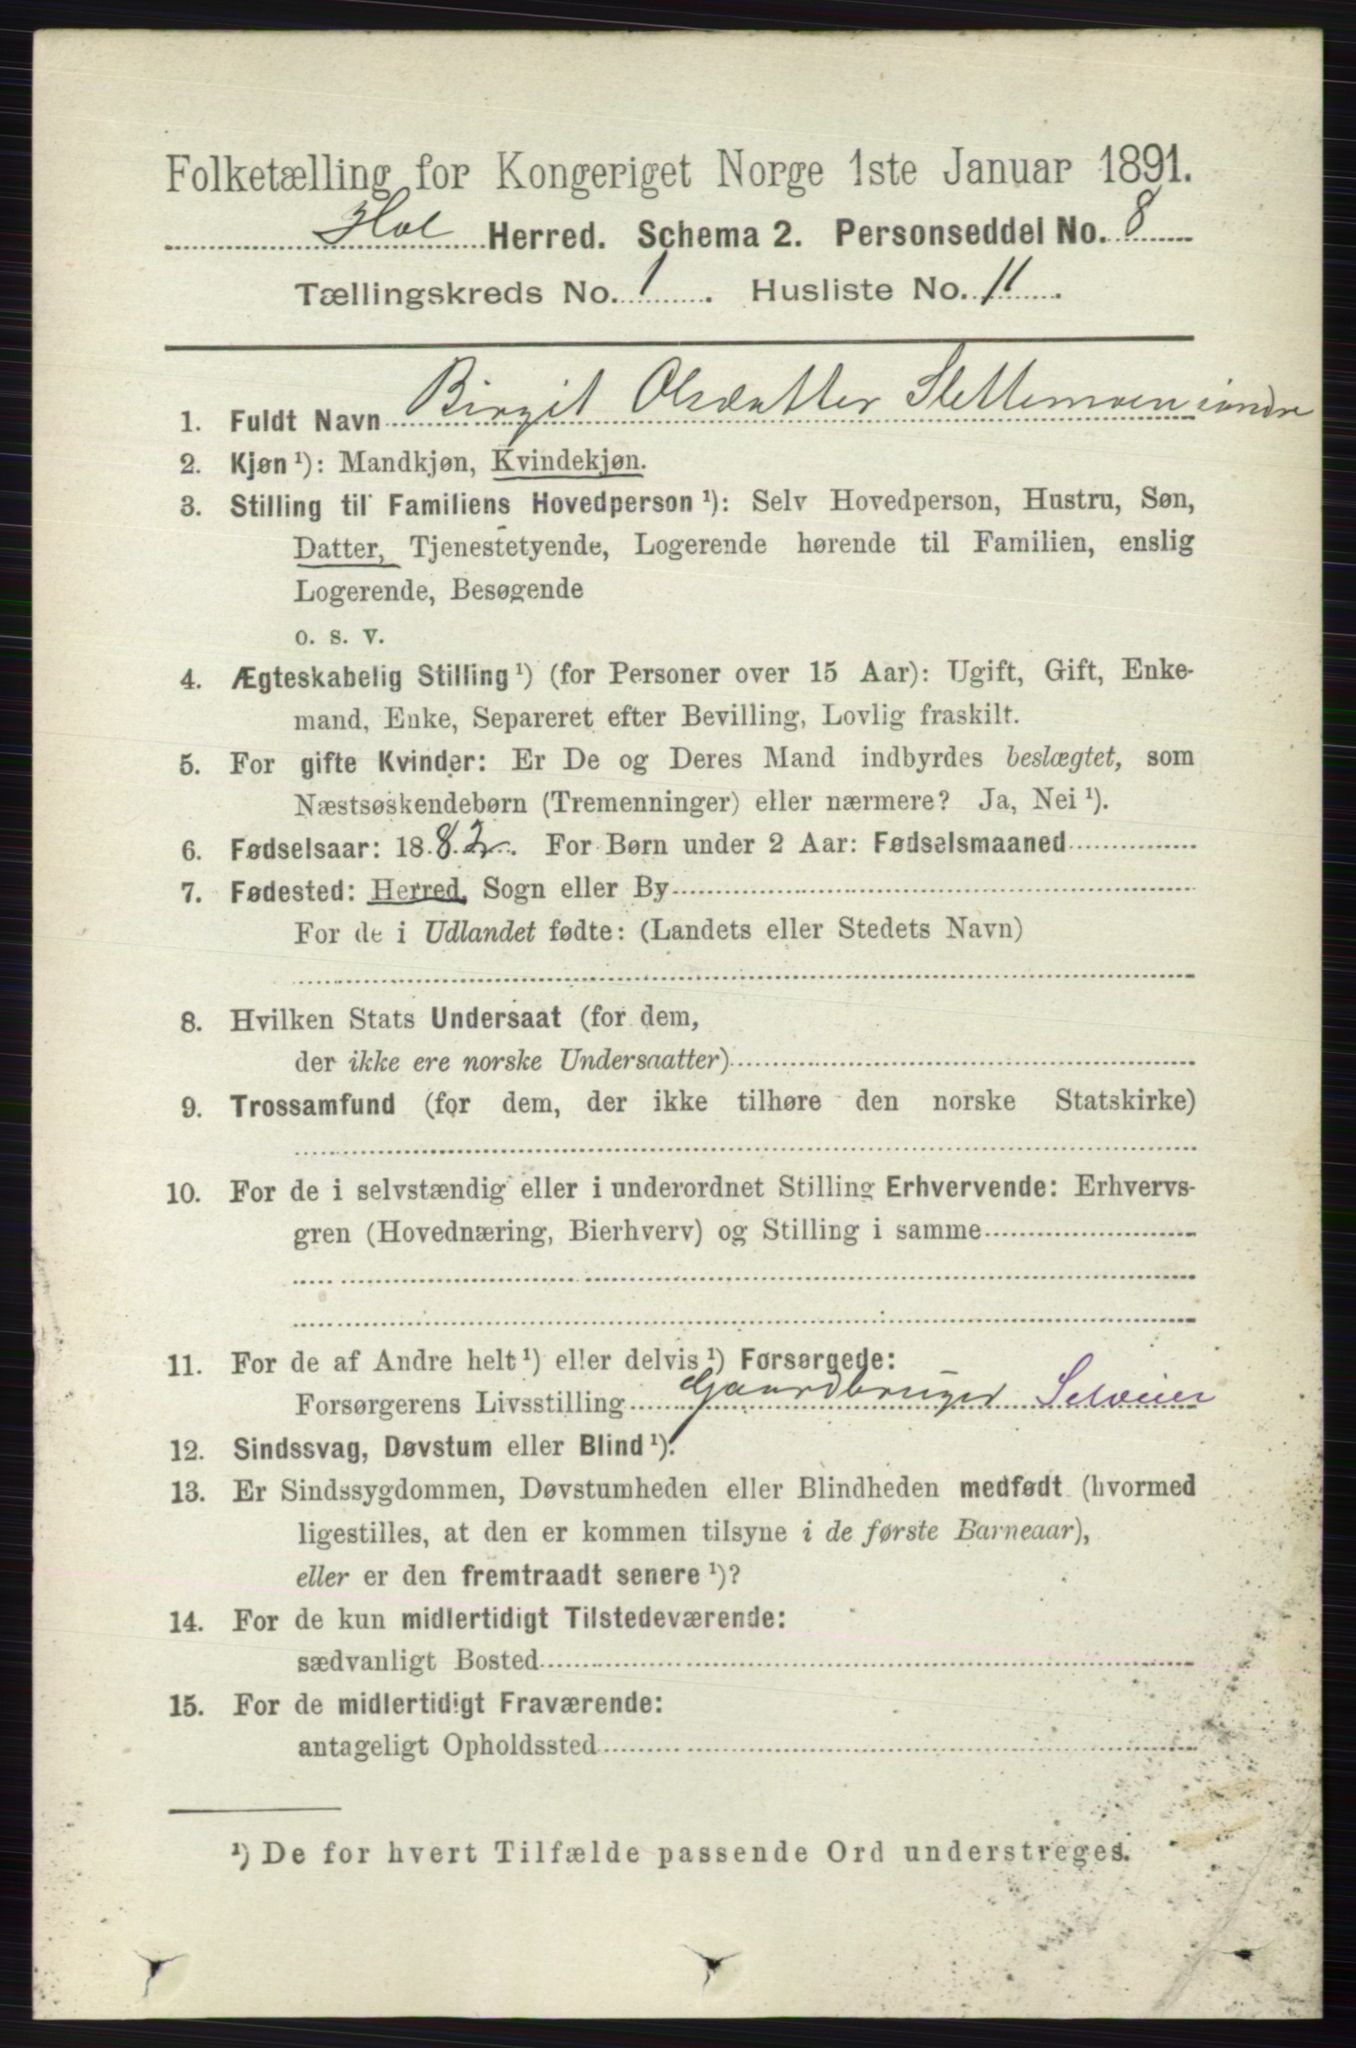 Folketælling for Kongeriget Norge 1ste Januar 1891.
Hol Herred. Schema 2. Personseddel No. 8
Tællingskreds No. 1. Husliste No. 11.
1. Fuldt Navn Birgit Olsdatter Slettemoen indre
2. Kjøn ¹): Mandkjøn, Kvindekjøn.
3. Stilling til Familiens Hovedperson ¹): Selv Hovedperson, Hustru, Søn,
Datter, Tjenestetyende, Logerende hørende til Familien, enslig
Logerende, Besøgende
o. s. v.
4. Ægteskabelig Stilling ¹) (for Personer over 15 Aar): Ugift, Gift, Enke-
mand, Enke, Separeret efter Bevilling, Lovlig fraskilt.
5. For gifte Kvinder: Er De og Deres Mand indbyrdes beslægtet, som
Næstsøskendebørn (Tremenninger) eller nærmere? Ja, Nei ¹).
6. Fødselsaar: 1882. For Børn under 2 Aar: Fødselsmaaned
7. Fødested: Herred, Sogn eller By
For de i Udlandet fødte: (Landets eller Stedets Navn)
8. Hvilken Stats Undersaat (for dem,
der ikke ere norske Undersaatter)
9. Trossamfund (for dem, der ikke tilhøre den norske Statskirke)
10. For de i selvstændig eller i underordnet Stilling Erhvervende: Erhvervs-
gren (Hovednæring, Bierhverv) og Stilling i samme
11. For de af Andre helt ¹) eller delvis ¹) Forsørgede:
Forsørgerens Livsstilling Gaardbruger Selveier
12. Sindssvag, Døvstum eller Blind ¹).
13. Er Sindssygdommen, Døvstumheden eller Blindheden medfødt (hvormed
ligestilles, at den er kommen tilsyne i de første Barneaar),
eller er den fremtraadt senere ¹)?
14. For de kun midlertidigt Tilstedeværende:
sædvanligt Bosted
15. For de midlertidigt Fraværende:
antageligt Opholdssted
¹) De for hvert Tilfælde passende Ord understreges.